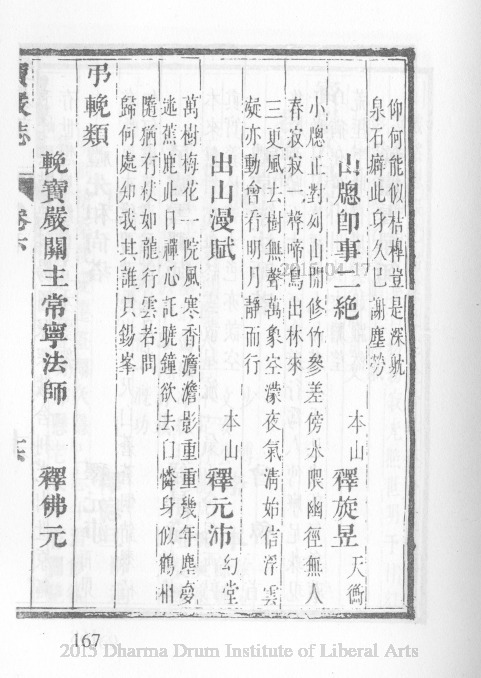 仰何能似桔槔豈是深躭
泉石癖此身久已謝塵勞
山牕卽事二絶　本山　釋旋昱　天衢
小牕正對列山開修竹參差傍水隈幽徑無人
春寂寂一聲啼鳥出林來
三更風去樹無聲萬象空濛夜氣淸始信浮雲
礙亦動會看明月靜而行
出山漫賦　本山　釋元沛　幻堂
萬樹梅花一院風寒香澹澹影重重幾年塵夢
迷蕉鹿此日禪心託曉鐘欲去自憐身似鶴相
隨猶有杖如龍行雲若問
歸何處知我其誰只錫峯
弔輓類
輓寶嚴關主常寧法師　釋佛元
寶嚴志　卷下
167
2015-04-17
2015 Dharma Drum Institute of Liberal Arts